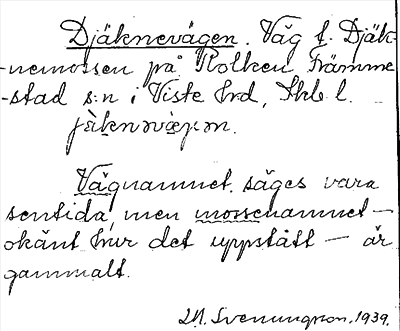 Djäknevägen. Väg f. Djäk-
-nemossen på Kolken Främme-
-stad s:n i Viste hrd, Skb l.
jäknovægen.
Vägnamnet säges vara
sentida, men mossenamnet —
okänt hur det uppstått — är
gammalt.
M. Svenungson. 1939.